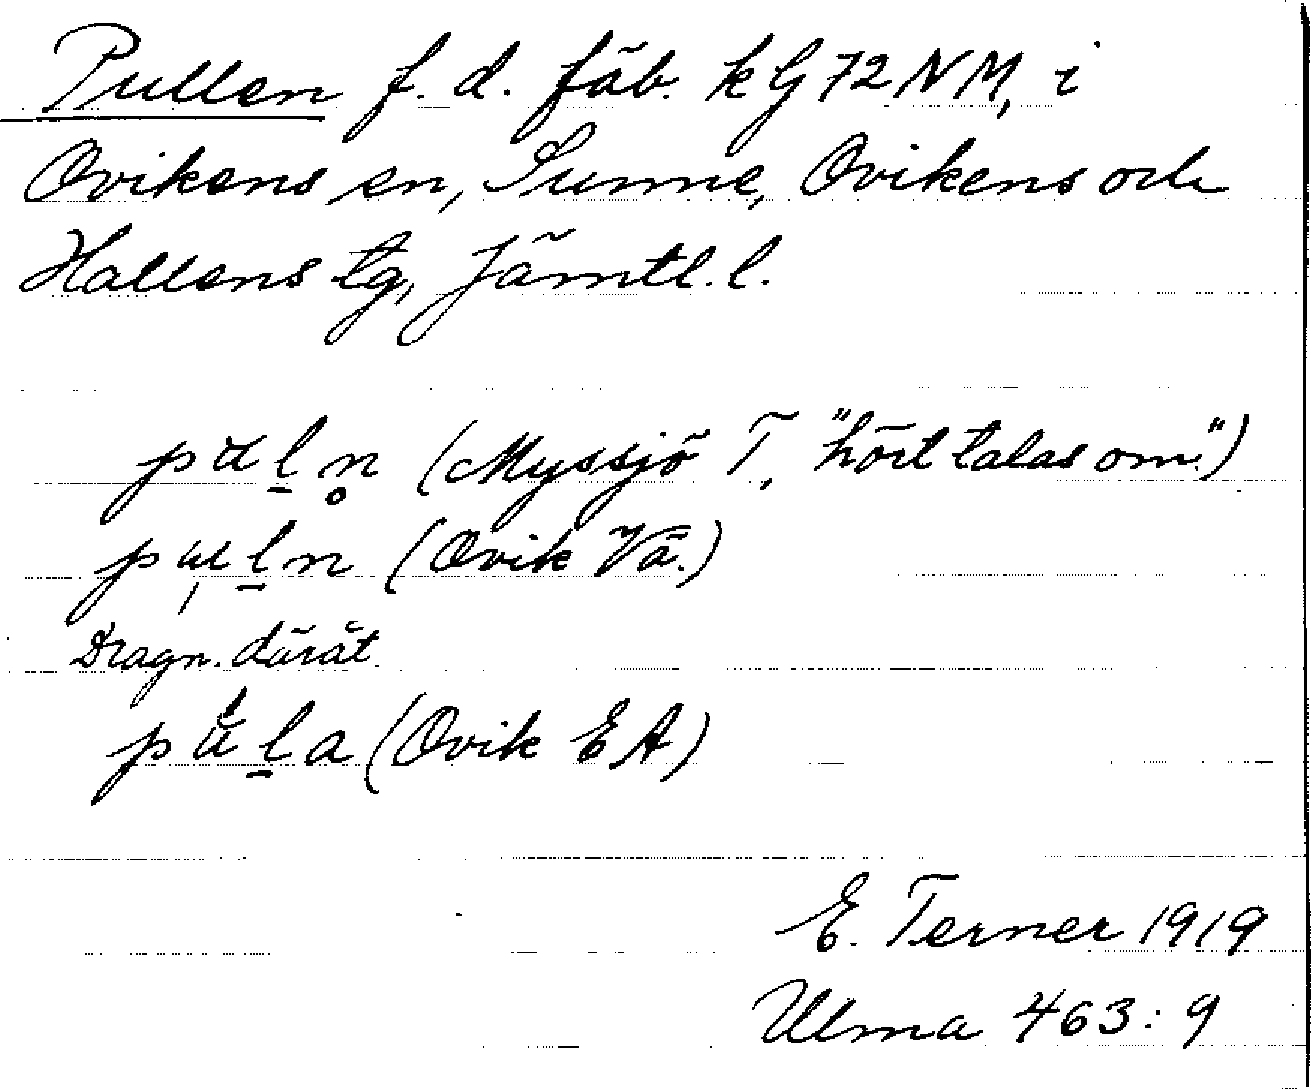 Pullen f. d. fäb. kG72NM, i
Ovikens sn, Sunne, Ovikens och
Hallens tg, Jämtl. l.
pul̠n̥ (Myssjö T, "hört talas om")
pu̩l̠n (Ovik Vä.)
Dragn. däråt
púl̠a (Ovik EA)
E. Terner 1919
Ulma 463:9